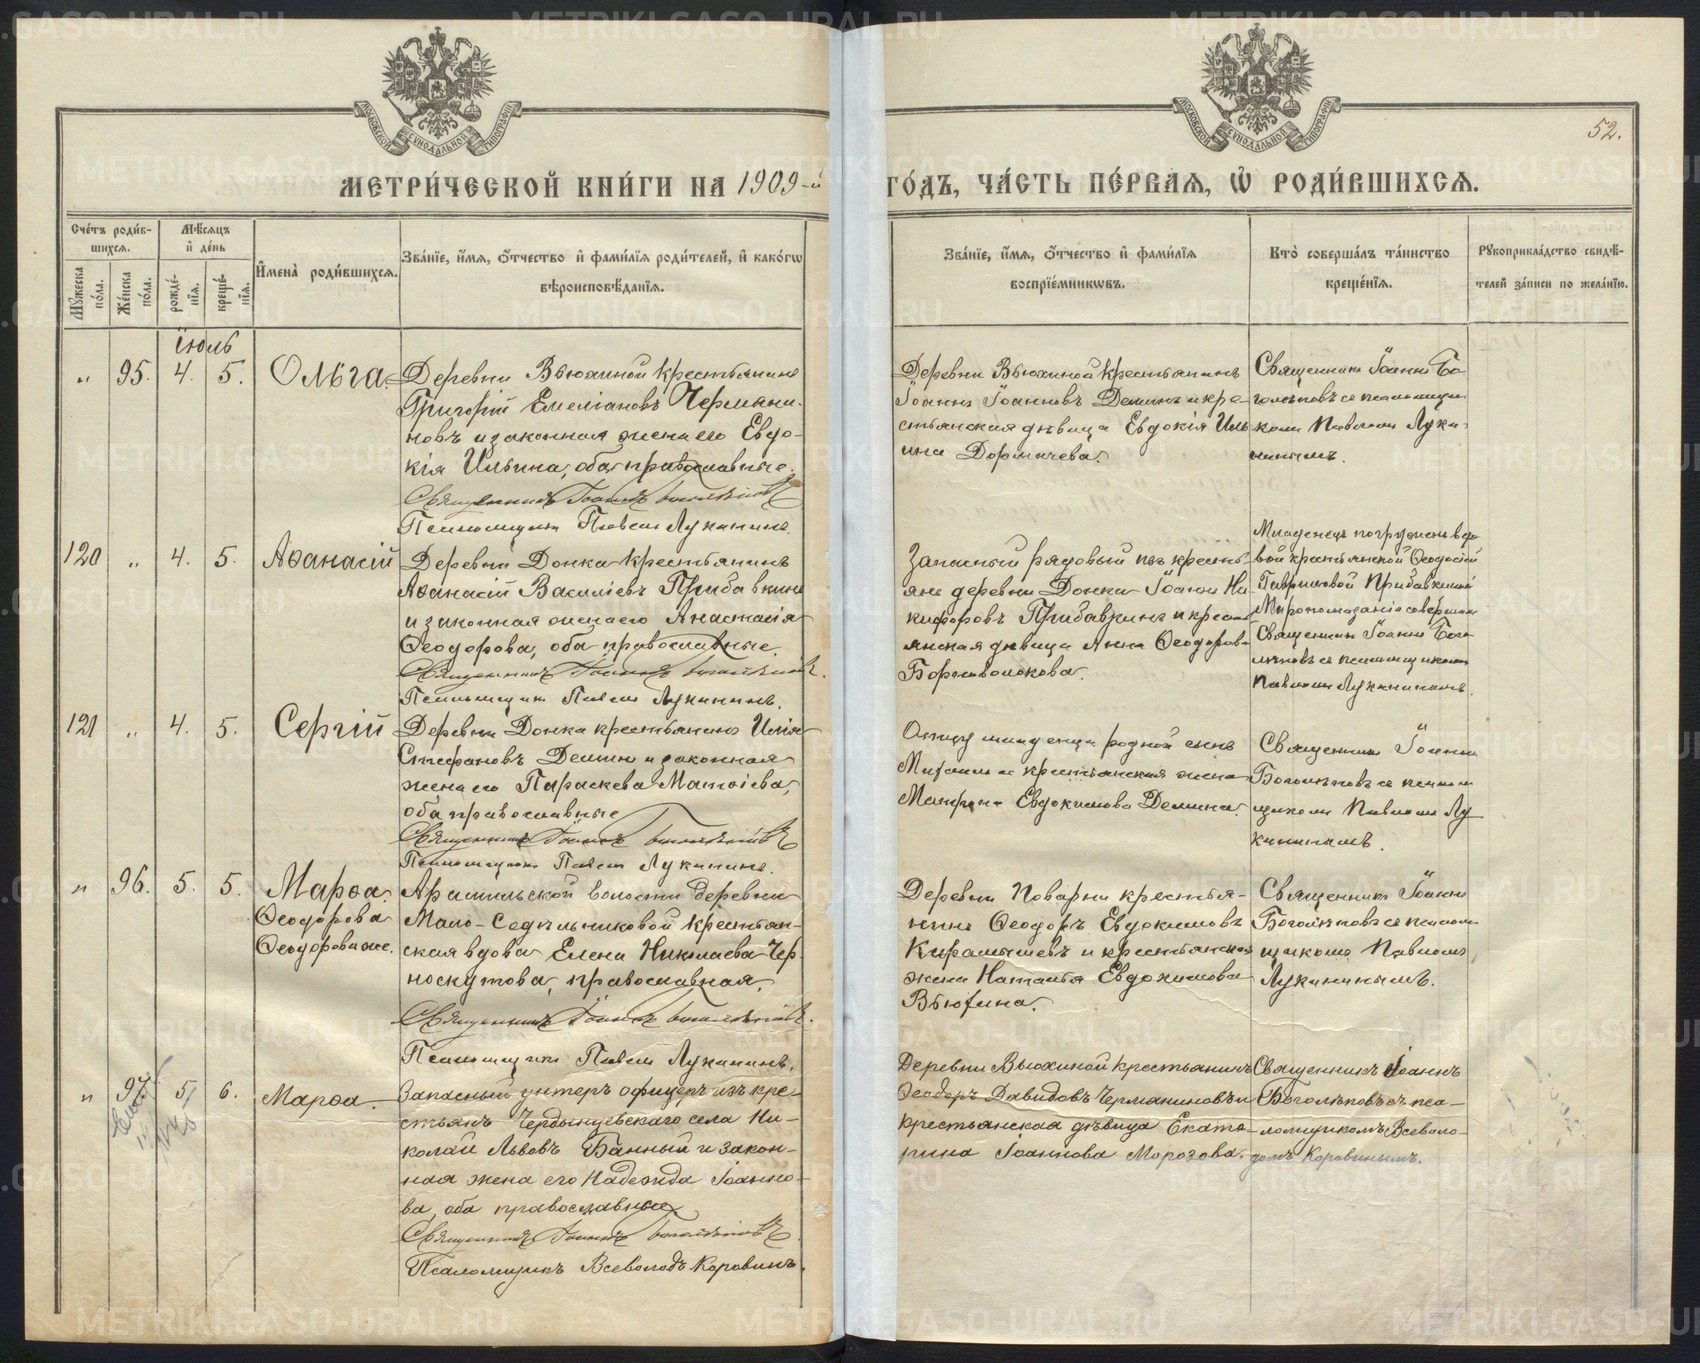 МЕТРИ́ЧЕСКОЙ КНИ́ГИ НА 1909-й ГО́ДЪ, ЧА́СТЬ ПЕ́РВАѦ, Ѡ҆ РОДИ́ВШИХСѦ.
52.
Сче́тъ роди́в-
шихсѧ.
Мꙋ́жеска по́ла.
Же́нска по́ла.
Мѣ́сѧцъ
и҆ де́нь
рожде́-
нїѧ.
креще́-
нїѧ.
И҆мена̀ роди́вшихсѧ.
Зва́нїе, и҆́мѧ, ѻ҆́тчество и҆ фами́лїѧ роди́телей, и҆ како́гѡ
вѣроисповѣ́данїѧ.
Зва́нїе, и҆́мѧ, ѻ҆́тчество и҆ фами́лїѧ
воспрїе́мникѡвъ.
Кто̀ соверша́лъ та́инство
креще́нїѧ.
Рꙋкоприкла́дство свидѣ́-
телей за́писи по жела́нїю.
Іюль
„ 95. 4. 5. Ольга.
Деревни Вьюхиной крестьянинъ
Григорій Емеліановъ Чермяни-
новъ и законная жена его Евдо-
кія Ильина, оба православные.
Священникъ Іоаннъ Боголѣповъ
Псаломщикъ Павелъ Лукининъ.
Деревни Вьюхиной крестьянинъ
Іоаннъ Іоанновъ Деминъ и кре-
стьянская дѣвица Евдокія Иль-
ина Дормачева.
Священникъ Іоаннъ Бо-
голѣповъ съ псаломщи-
комъ Павломъ Луки-
нинымъ.
120 „ 4. 5. Аѳанасій
Деревни Донка крестьянинъ
Аѳанасій Василіевъ Прибавкинъ
и законная жена его Анастасія
Ѳеодорова, оба православные.
Священникъ Іоаннъ Боголѣповъ.
Псаломщикъ Павелъ Лукининъ.
Запасный рядовый изъ кресть-
янъ деревни Донка Іоаннъ Ни-
кифоровъ Прибавкинъ и кресть-
янская дѣвица Анна Ѳеодорова
Борноволокова.
Младенецъ погруженъ вдо-
вой крестьянской Ѳеодосіей
Гавриловой Прибавкиной
Миропомазаніе совершилъ
Священникъ Іоаннъ Бого-
лѣповъ съ псаломщикомъ
Павломъ Лукининымъ.
121 „ 4. 5. Сергій
Деревни Донка крестьянинъ Илія
Стефановъ Деминъ и законная
жена его Параскева Матѳіева,
оба православные
Священникъ Іоаннъ Боголѣповъ
Псаломщикъ Павелъ Лукининъ.
Отцу младенца родной сынъ
Михаилъ и крестьянская жена
Матрона Евдокимова Демина.
Священникъ Іоаннъ
Боголѣповъ съ псалом-
щикомъ Павломъ Лу-
кининымъ.
„ 96. 5. 5. Марѳа.
Ѳеодорова
Ѳеодорова же.
Арамильской волости деревни
Мало-Седельниковой крестьян-
ская вдова Елена Николаева Чер-
носкутова, православная.
Священникъ Іоаннъ Боголѣповъ.
Псаломщикъ Павелъ Лукининъ.
Деревни Поварни крестья-
нинъ Ѳеодоръ Евдокимовъ
Карамышевъ и крестьянская
жена Наталья Евдокимова
Вьюхина.
Священникъ Іоаннъ
Боголѣповъ съ псалом-
щикомъ Павломъ
Лукининымъ.
„ 97. 5. 6. Марѳа.
Запасный унтеръ офицеръ изъ кре-
стьянъ Чердынцевскаго села Ни-
колай Львовъ Банный и закон-
ная жена его Надежда Іоанно-
ва, оба православные.
Священникъ Іоаннъ Боголѣповъ
Псаломщикъ Всеволодъ Коровинъ.
Деревни Вьюхиной крестьянинъ
Ѳеодоръ Давидовъ Чермяниновъ и
крестьянская дѣвица Екате-
рина Іоаннова Морозова.
Священникъ Іоаннъ
Боголѣповъ съ пса-
ломщикомъ Всеволо-
домъ Коровинымъ.
METRIKI.GASO-URAL.RU